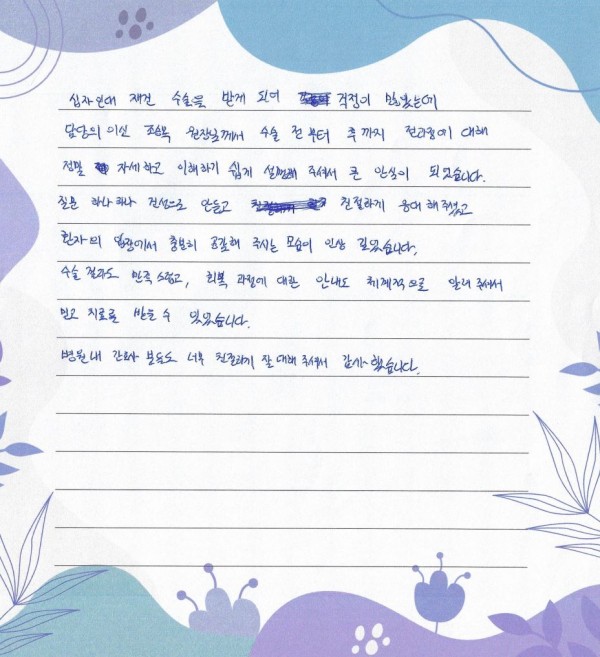 십자인대 재건 수술을 받게 되어 걱정이 많았는데
담당의이신 조승목 원장님께서 수술 전부터 후까지 전과정에 대해
정말 자세하고 이해하기 쉽게 설명해 주셔서 큰 안심이 되었습니다.
질문 하나하나 진심으로 안들고 친절하게 응대해주셨고
환자의 입장에서 충분히 공감해 주시는 모습이 인상 깊었습니다.
수술 결과도 만족스럽고, 회복 과정에 대한 안내도 체계적으로 알려주셔서
믿고 치료를 받을 수 있었습니다.
병원내 간호사 분들도 너무 친절하게 잘 대해 주셔서 감사했습니다.